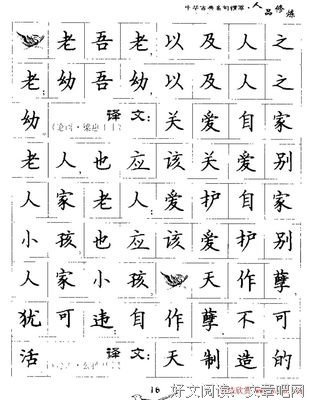 中华古典名句精萃·人品修炼
老吾老,以及人之
老;幼吾幼,以及人之
幼。 译文:关爱自家
老人,也应该关爱别
人家老人;爱护自家
小孩,也应该爱护别
人家小孩。 天作孽,
犹可违;自作孽,不可
活。 译文:天制造的
16
好文阅读 文章吧网